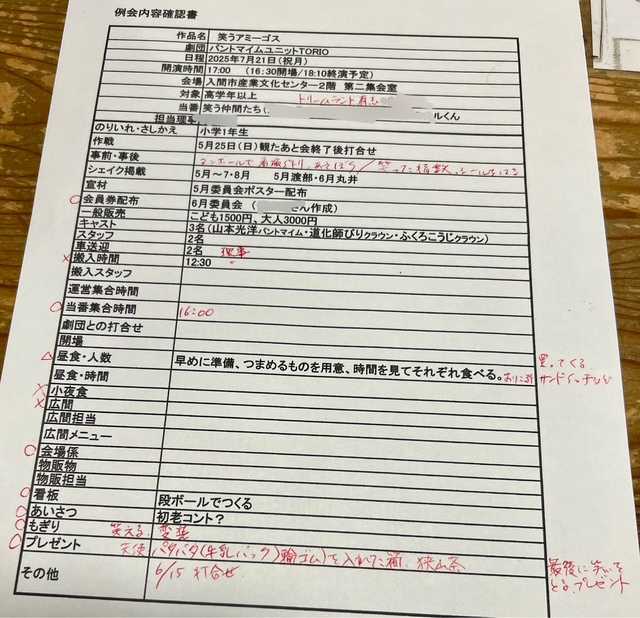 例会内容確認書
作品名 笑うアミーゴス
劇団 パントマイムユニットTORIO
日程 2025年7月21日(祝月)
開演時間 17:00 (16:30開場/18:10終演予定)
会場 入間市産業文化センター2階 第二集会室
対象 高学年以上
当番 笑う仲間たち( ルくん
担当理
のりいれ・さしかえ 小学1年生
作戦 5月25日(日)観たあと会終了後打合せ
事前・事後
シェイク掲載 5月～7・8月 5月渡部・6月丸井
宣材 5月委員会ポスター配布
○ 会員券配布 6月委員会 ( さん作成)
一般販売 こども1500円、大人3000円
キャスト 3名(山本光洋パントマイム・道化師びりクラウン・ふくろこうじクラウン)
スタッフ 2名
車送迎 2名 理事
× 搬入時間 12:30
搬入スタッフ
運営集合時間
○ 当番集合時間 16:00
劇団との打合せ
開場
△ 昼食・人数 早めに準備、つまめるものを用意、時間を見てそれぞれ食べる。 買ってくる
昼食・時間 おにぎり サンドイッチなど
× 小夜食
× 広間
広間担当
広間メニュー
○ 会場係
物販物
物販担当
○ 看板 段ボールでつくる
○ あいさつ 初老コント?
○ もぎり 笑える 変装
○ プレゼント 天使 パタパタ(牛乳パック)輪ゴム)を入れた箱、狭山茶 最後に笑いを とるプレゼント
その他 6/15 打合せ